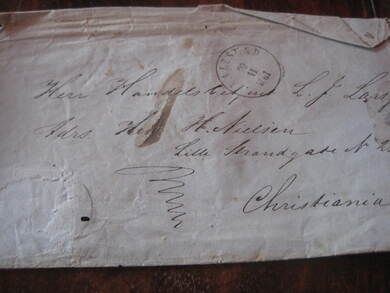 Herr Handelsbetjent L. J. Lars
Adrs. Herr H. Nielsen
Lille Strandgade N
Christiania